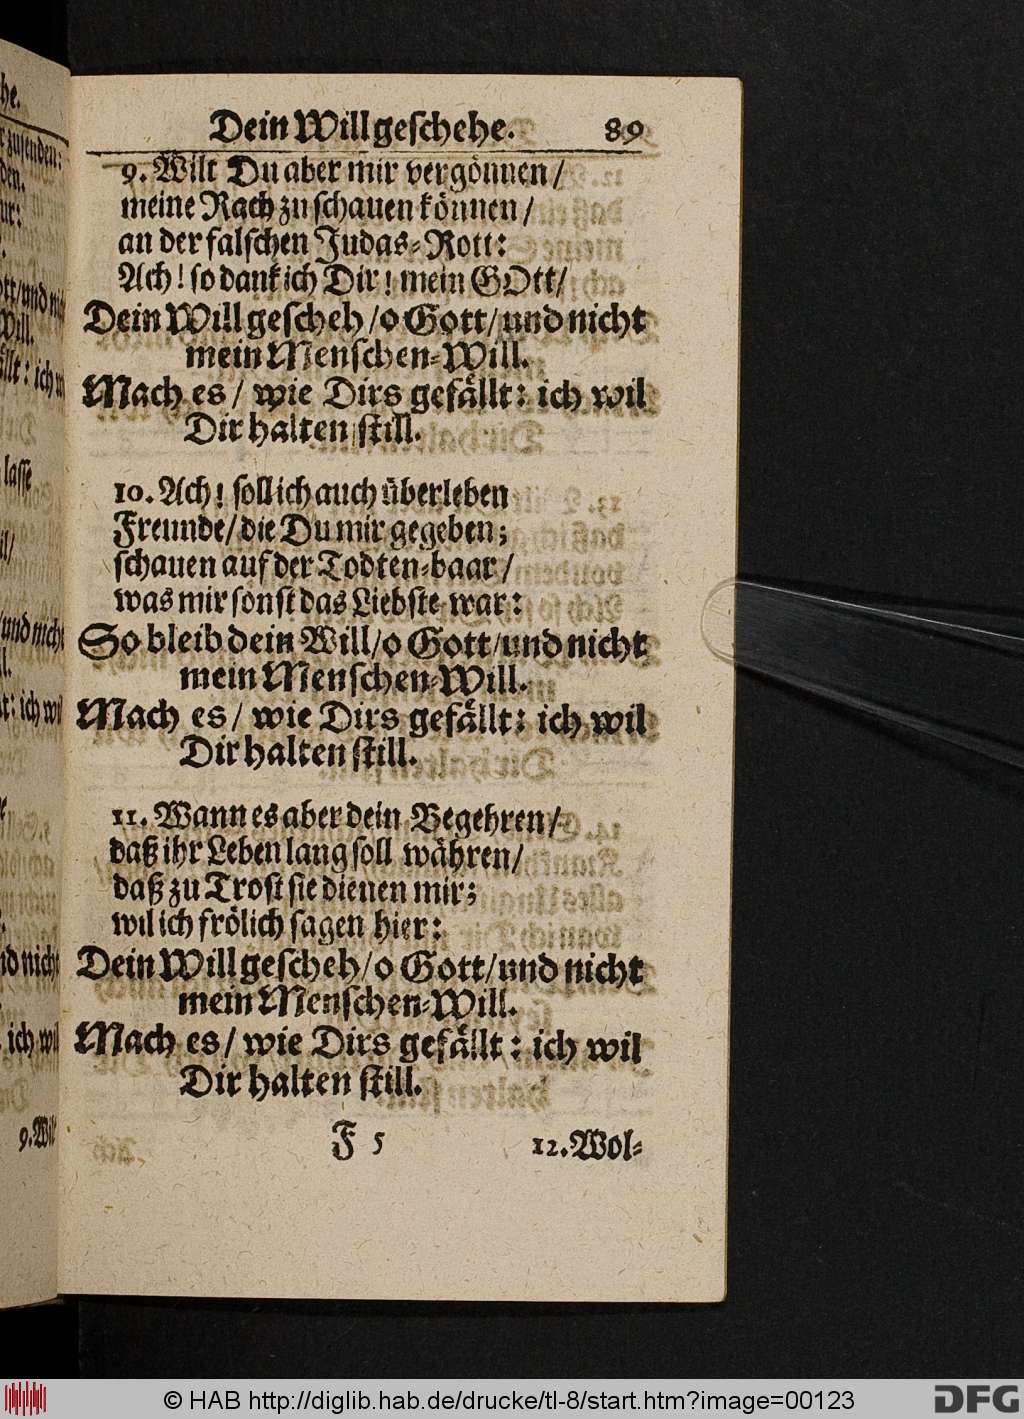 Dein Will geschehe. 89
9. Wilt Du aber mir vergönnen /
meine Rach zu schauen können /
an der falschen Judas-Rott:
Ach! so dank ich Dir! mein GOtt/
Dein Will gescheh / o Gott / und nicht
mein Menschen-Will.
Mach es / wie Dirs gefällt: ich wil
Dir halten still.
10. Ach! soll ich auch überleben
Freunde/ die Du mir gegeben;
schauen auf der Todten-baar /
was mir sonst das Liebste war:
So bleib dein Will/ o Gott / und nicht
mein Menschen-Will.
Mach es / wie Dirs gefällt: ich wil
Dir halten still.
11. Wann es aber dein Begehren /
daß ihr Leben lang soll währen /
daß zu Trost sie dienen mir;
wil ich frölich sagen hier:
Dein Will gescheh / o Gott / und nicht
mein Menschen-Will.
Mach es / wie Dirs gefällt: ich wil
Dir halten still.
F 5 12. Wol-
he.
zusenden:
den.
Will.
lasse
und nicht
ich wil
nd nicht
ich wil
9. Wilt
© HAB http://diglib.hab.de/drucke/tl-8/start.htm?image=00123
DFG